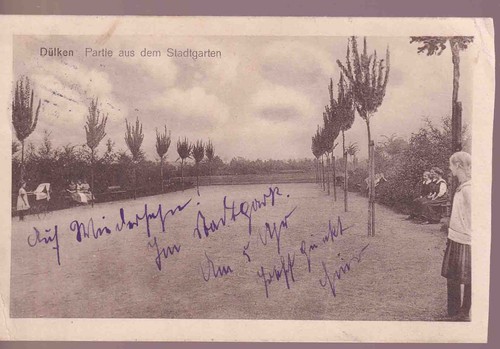 Dülken Partie aus dem Stadtgarten
Auf Wiedersehn!
Im Stadtpark.
Am 5 Uhr
Treffpunkt